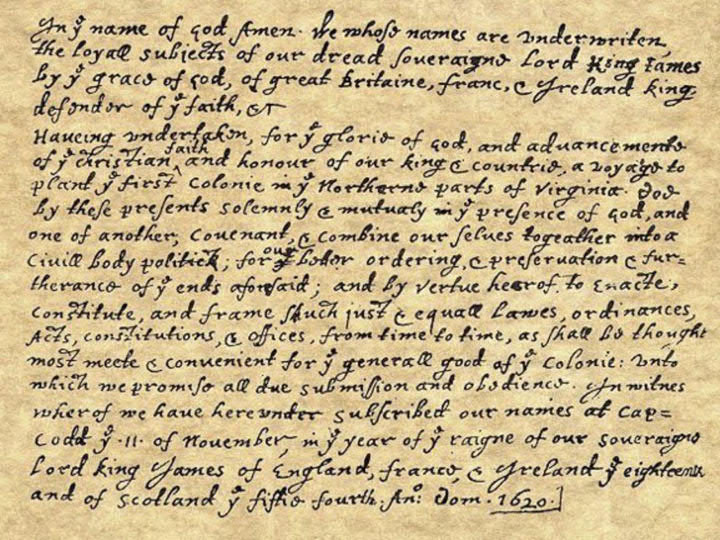 In yͤ name of god Amen. We whose names are vnderwriten,
the loyall subjects of our dread soveraigne Lord King James
by yͤ grace of god, of great Britaine, franc, & Ireland king,
defender of yͤ faith, &c
Haveing vndertaken, for yͤ glorie of god, and advancemente
of yͤ christian ^faith and honour of our king & countrie, a voyage to
plant yͤ first colonie in yͤ Northerne parts of Virginia. doe
by these presents solemnly & mutualy in yͤ presence of god, and
one of another, covenant, & combine our selves togeather into a
civill body politick; for our better ordering, & preservation & fur=
therance of yͤ ends aforesaid; and by vertue hearof, to enacte,
constitute, and frame shuch just & equall lawes, ordinances,
Acts, constitutions, & offices, from time to time, as shall be thought
most meete & convenient for yͤ generall good of yͤ colonie: vnto
which we promise all due submission and obedience. In witnes
wherof we have herevnder subscribed our names at cap=
Codd yͤ .11. of November, in yͤ year of yͤ raigne of our soveraigne
Lord king James of England, france, & Ireland yͤ eighteenth
and of Scotland yͤ fiftie fourth. Anᵒ: Dom. 1620.